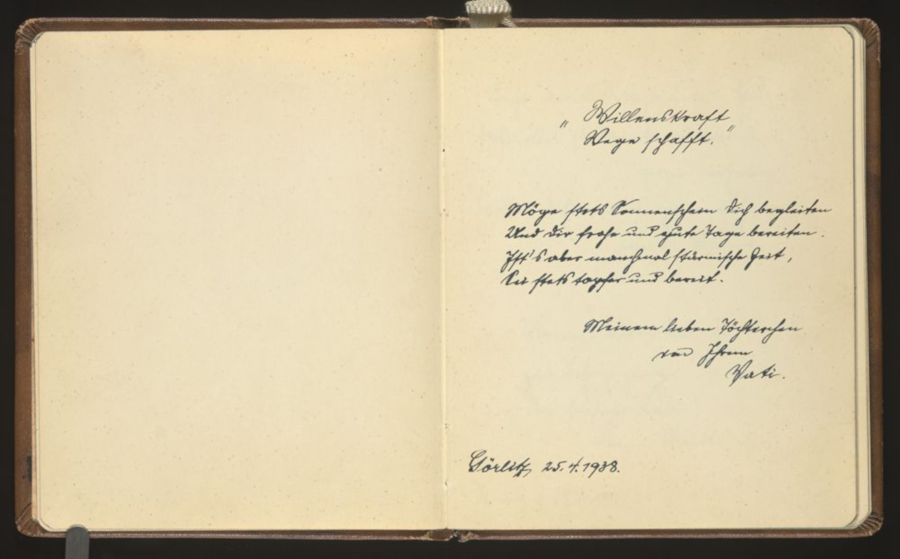 „Willenskraft
Wege schafft."
Möge stets Sonnenschein Dich begleiten
Und Dir frohe und gute Tage bereiten.
Ist's aber manchmal stürmische Zeit,
Sei stets tapfer und bereit.
Meinem lieben Töchterchen
von Ihrem
Vati.
Görlitz, 25.4.1938.